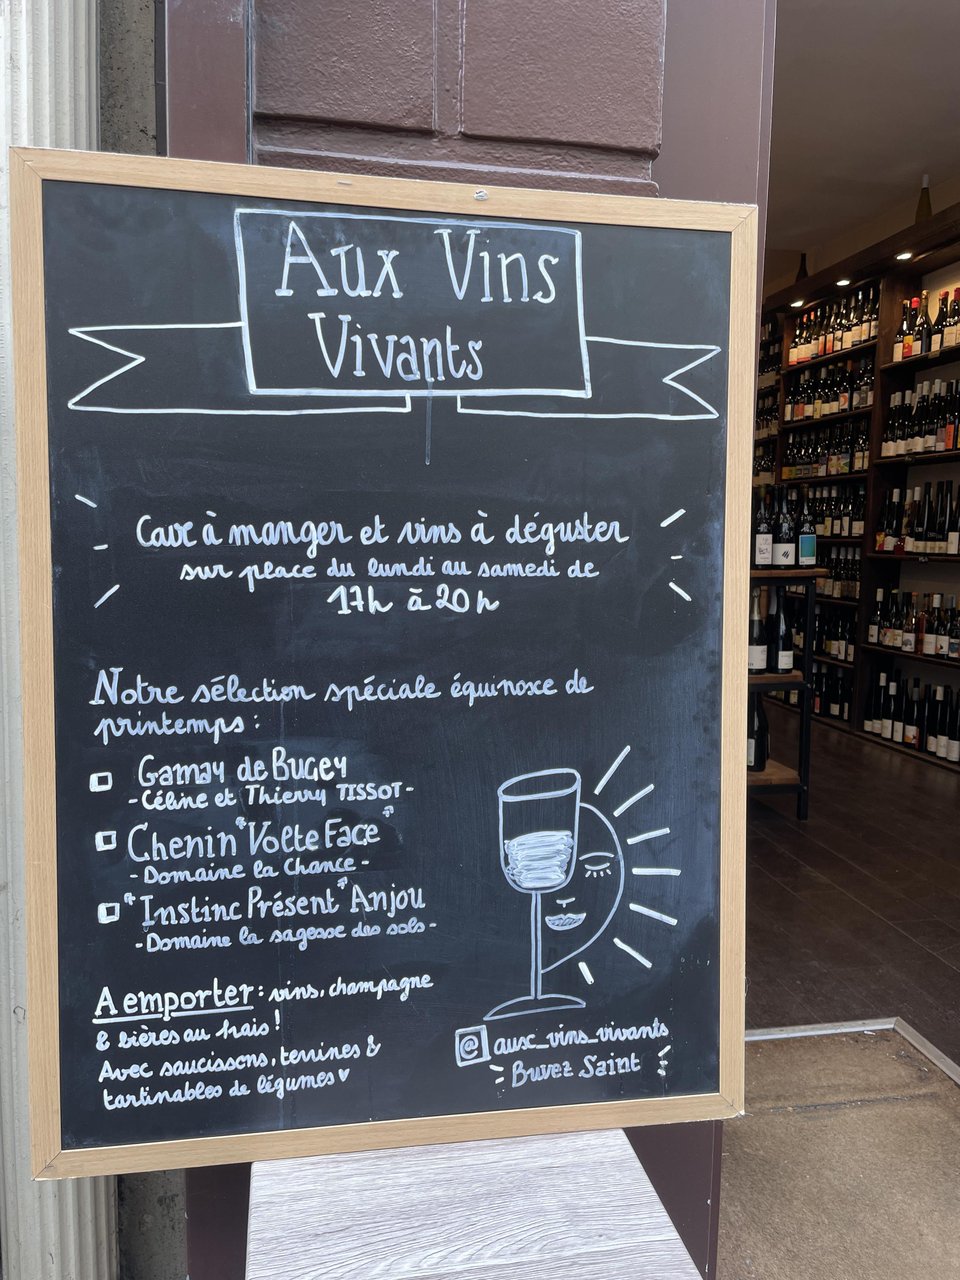 Aux Vins
Vivants
Cave à manger et vins à déguster
sur place du lundi au samedi de
17h à 20h
Notre sélection spéciale équinoxe de
printemps :
Gamay de Bugey
- Céline et Thierry TISSOT -
Chenin "Volte Face"
- Domaine la Chance -
"Instinc Présent" Anjou
- Domaine la sagesse des sols -
A emporter : vins, champagne
& bières au frais !
Avec saucissons, terrines &
tartinables de légumes ♥
@ aux_vins_vivants
Buvez Saint